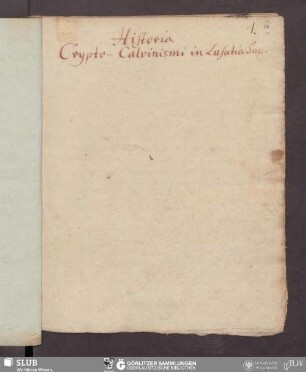 1.
Historia
Crypto-Calvinismi in Lusatia Sup.
SLUB
Wir führen Wissen.
GÖRLITZER SAMMLUNGEN
OBERLAUSITZISCHE BIBLIOTHEK